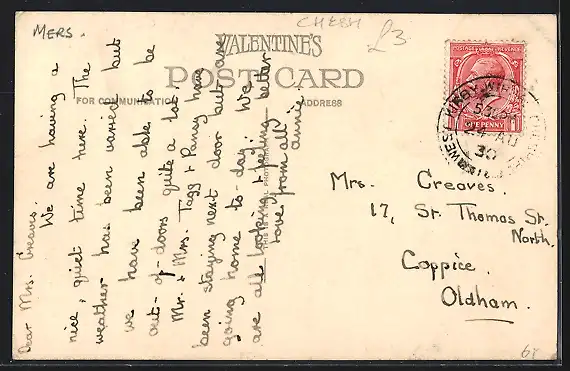 MERS.
CHESH
£3
VALENTINE'S
POST CARD
FOR COMMUNICATION
ADDRESS
POSTAGE REVENUE
ONE PENNY
WEST KIRBY WIRRAL
30
Dear Mrs. Creaves.
We are having a
nice, quiet time here. The
weather has been varied but
we have been able to be
out-of-doors quite a lot.
Mr. & Mrs. Tagg & Pansy have
been staying next door but are
going home to-day. We
are all looking & feeling better
Love from all
Annie
THIS IS A REAL PHOTOGRAPH
Mrs. Creaves.
17, St. Thomas St.
North.
Coppice.
Oldham.